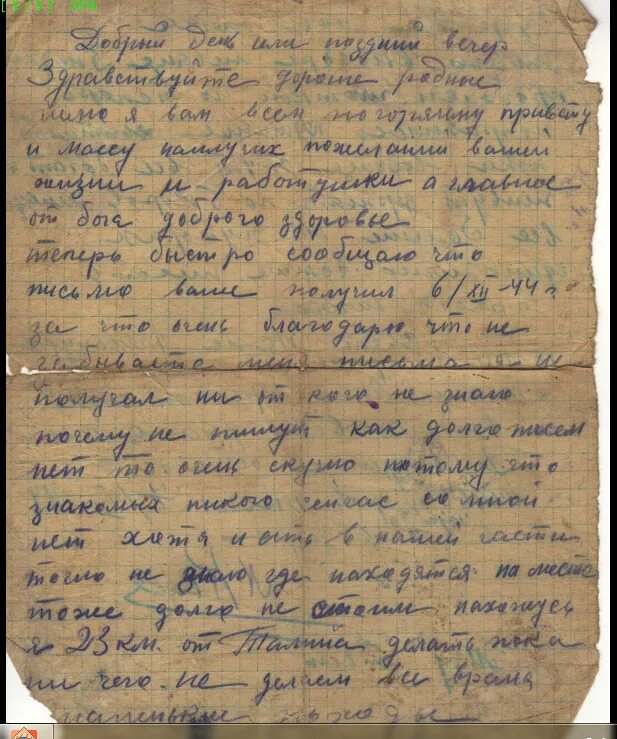 Добрый день или поздний вечер
Здравствуйте дорогие родные
я вам всем по горячему привету
и массу наилучих пожеланий вашей
жизни и работушки а главное
от бога доброго здоровье
теперь быстро сообщаю что
письмо ваше получил 6/XII-44 г.
за что очень благодарю что не
забываете меня письма я не
получал ни от кого не знаю
почему не пишут как долго писем
нет то очень скучно потому что
знакомых никого сейчас со мной
нет хотя и есть в нашей части
точно не знаю где находятся на месте
тоже долго не стоим нахожусь
я 23 км. от Талина делать пока
ни чего не делаем все время
маленькие походы